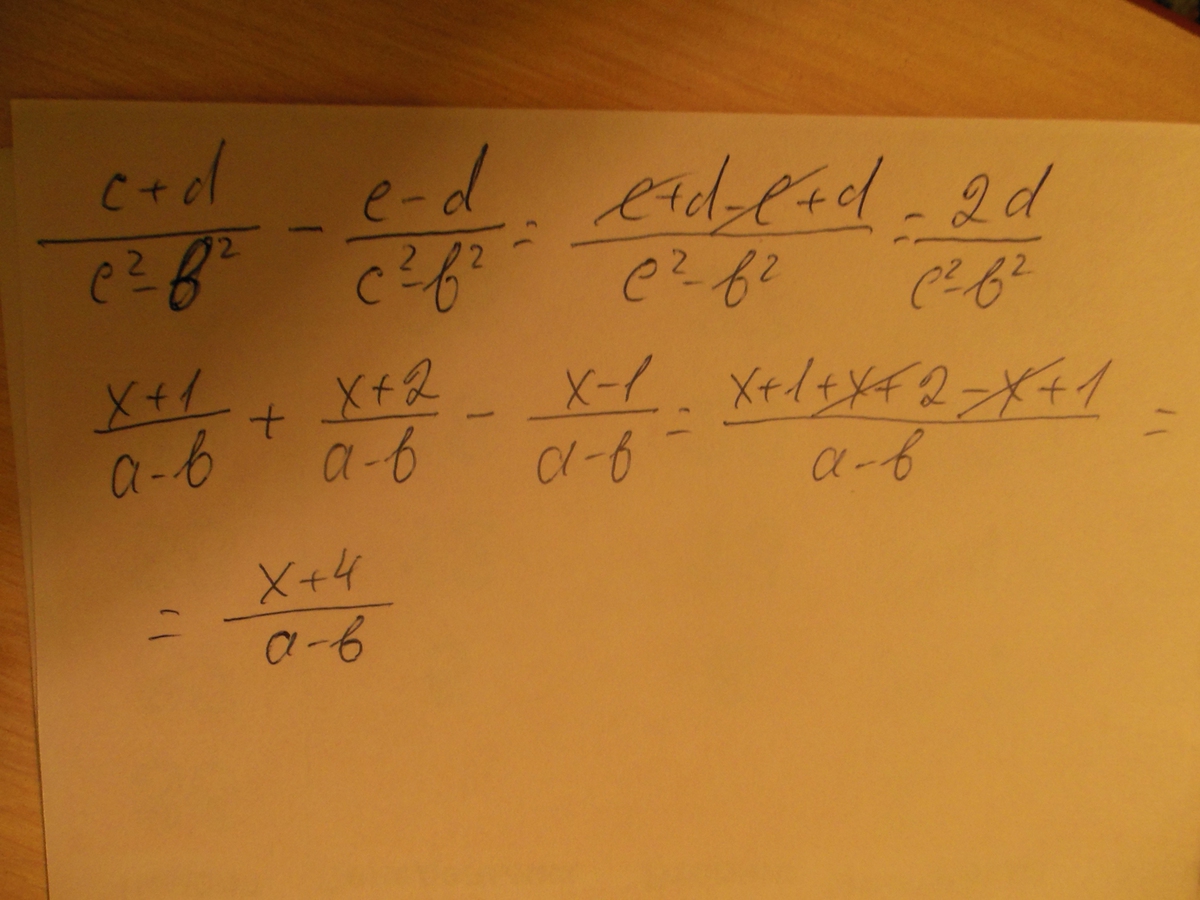 (c+d)/(c²-b²) - (c-d)/(c²-b²) = (c+d-c+d)/(c²-b²) = 2d/(c²-b²)
(x+1)/(a-b) + (x+2)/(a-b) - (x-1)/(a-b) = (x+1+x+2-x+1)/(a-b) =
= (x+4)/(a-b)